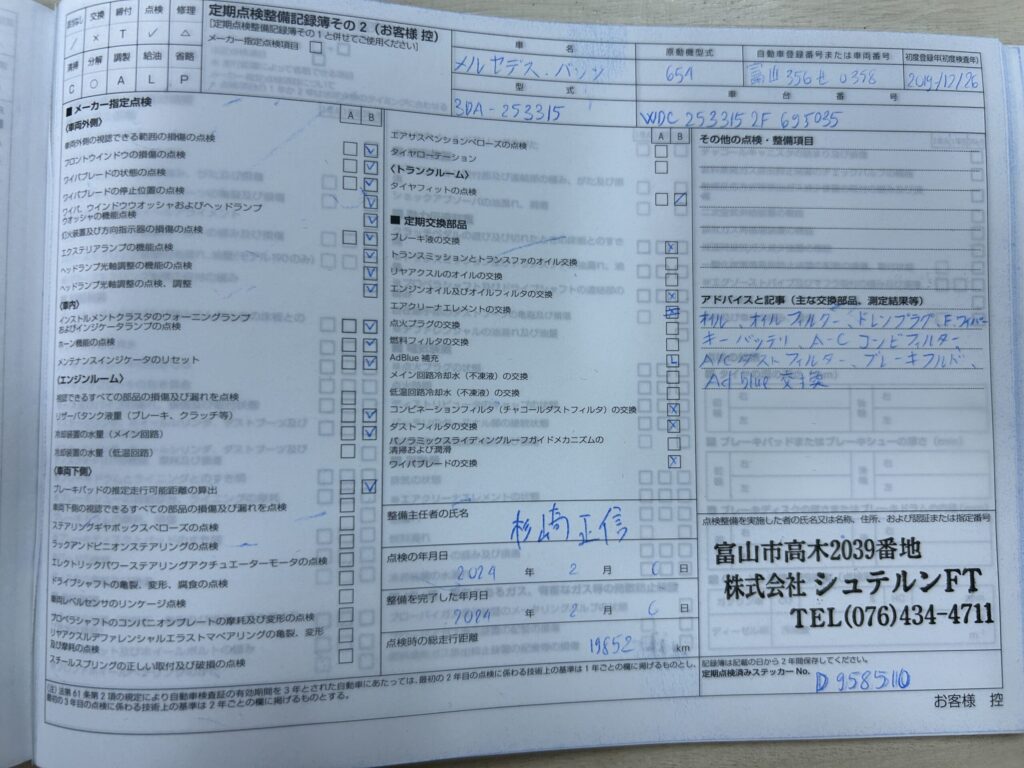 定期点検整備記録簿その2(お客様 控)
[定期点検整備記録簿その1と併せてご使用ください]
メーカー指定点検項目
交換 締付 点検 修理
/ × T ✓ △
清掃 分解 調製 給油 省略
C ○ A L P
車名
メルセデス・ベンツ
原動機型式
654
自動車登録番号または車両番号
富山 356 せ 0398
初度登録年(初度検査年)
2019/12/26
型式
3DA-253315
車台番号
WDC 253315 2F 695035
■ メーカー指定点検
A B
〈車両外側〉
車両外側の視認できる範囲の損傷の点検
フロントウインドウの損傷の点検
ワイパブレードの状態の点検
ワイパブレードの停止位置の点検
ワイパ、ウインドウウオッシャおよびヘッドランプ
ウオッシャの機能点検
灯火装置及び方向指示器の損傷の点検
エクステリアランプの機能点検
ヘッドランプ光軸調整の機能の点検
ヘッドランプ光軸調整の点検、調整
〈車内〉
インストルメントクラスタのウォーニングランプ
およびインジケータランプの点検
ホーン機能の点検
メンテナンスインジケータのリセット
〈エンジンルーム〉
視認できるすべての部品の損傷及び漏れを点検
リザーバタンク液量(ブレーキ、クラッチ等)
冷却装置の水量(メイン回路)
冷却装置の水量(低温回路)
〈車両下側〉
ブレーキパッドの推定走行可能距離の算出
車両下側の視認できるすべての部品の損傷及び漏れを点検
ステアリングギヤボックスベローズの点検
ラックアンドピニオンステアリングの点検
エレクトリックパワーステアリングアクチュエーターモータの点検
ドライブシャフトの亀裂、変形、腐食の点検
車両レベルセンサのリンケージ点検
プロペラシャフトのコンパニオンプレートの摩耗及び変形の点検
リヤアクスルデファレンシャルエラストマベアリングの亀裂、変形
及び摩耗の点検
スチールスプリングの正しい取付及び破損の点検
A B
エアサスペンションベローズの点検
タイヤローテーション
〈トランクルーム〉
タイヤフィットの点検
■ 定期交換部品
ブレーキ液の交換
トランスミッションとトランスファのオイル交換
リヤアクスルのオイルの交換
エンジンオイル及びオイルフィルタの交換
エアクリーナエレメントの交換
点火プラグの交換
燃料フィルタの交換
AdBlue 補充
メイン回路冷却水(不凍液)の交換
低温回路冷却水(不凍液)の交換
コンビネーションフィルタ(チャコールダストフィルタ)の交換
ダストフィルタの交換
パノラミックスライディングルーフガイドメカニズムの
清掃および潤滑
ワイパブレードの交換
整備主任者の氏名
杉崎正信
点検の年月日
2024 年 2 月 6 日
整備を完了した年月日
2024 年 2 月 6 日
点検時の総走行距離
19852 km
その他の点検・整備項目
アドバイスと記事(主な交換部品、測定結果等)
オイル、オイルフィルター、ドレンプラグ、F.ワイパー
キーバッテリ、A-C コンビフィルター
A/Cダストフィルター、ブレーキフルード、
Ad blue 交換
点検整備を実施した者の氏名又は名称、住所、および認証または指定番号
富山市高木2039番地
株式会社 シュテルンFT
TEL(076)434-4711
記録簿は記載の日から2年間保存してください。
定期点検済みステッカー No.
D 9585110
(注)法第61条第2項の規定により自動車検査証の有効期間を3年とされた自動車にあたっては、最初の2年目の点検に係わる技術上の基準は1年ごとの欄に掲げるものとし、
最初の3年目の点検に係わる技術上の基準は2年ごとの欄に掲げるものとする。
お客様 控